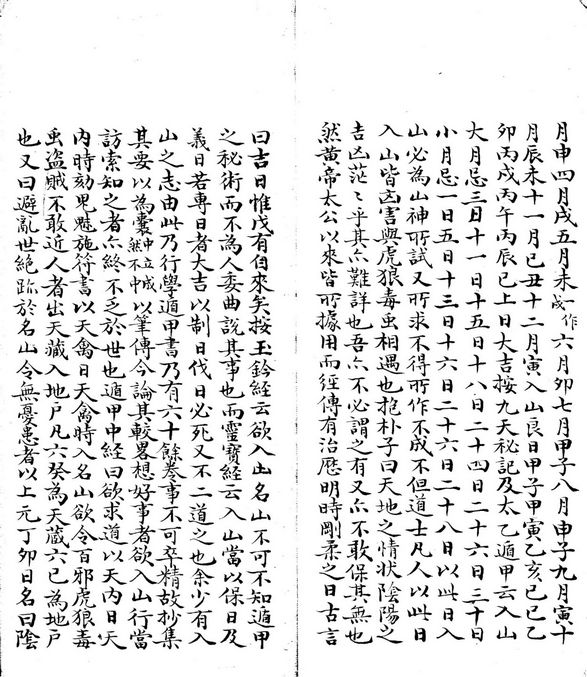 月申四月戌五月未一作戌六月卯七月甲子八月申子九月寅十
月辰未十一月己丑十二月寅入山良日甲子甲寅乙亥己巳乙
卯丙戌丙午丙辰已上日大吉按九天秘記及太乙遁甲云入山
大月忌三日十一日十五日十八日二十四日二十六日三十日
小月忌一日五日十三日十六日二十六日二十八日以此日入
山必為山神所試又所求不得所作不成不但道士凡人以此日
入山皆凶害與虎狼毒虫相遇也抱朴子曰天地之情狀陰陽之
吉凶茫茫乎其亦難詳也吾亦不必謂之有又亦不敢保其無也
然黃帝太公以來皆所據用而經傳有治曆明時剛柔之日古言
曰吉日惟戊有自來矣按玉鈐經云欲入山名山不可不知遁甲
之秘術而不為人委曲說其事也而靈寶經云入山當以保日及
義日若專日者大吉以制日伐日必死又不二道之也余少有入
山之志由此乃行學遁甲書乃有六十餘卷事不可卒精故抄集
其要以為囊中立成然不中以筆傳今論其較畧想好事者欲入山行當
訪索知之者亦終不乏於世也遁甲中經曰欲求道以天內日天
內時刻鬼魅施符書以天禽日天禽時入名山欲令百邪虎狼毒
虫盜賊不敢近人者出天藏入地戶凡六癸為天藏六己為地戶
也又曰避亂世絕跡於名山令無憂患者以上元丁卯日名曰陰